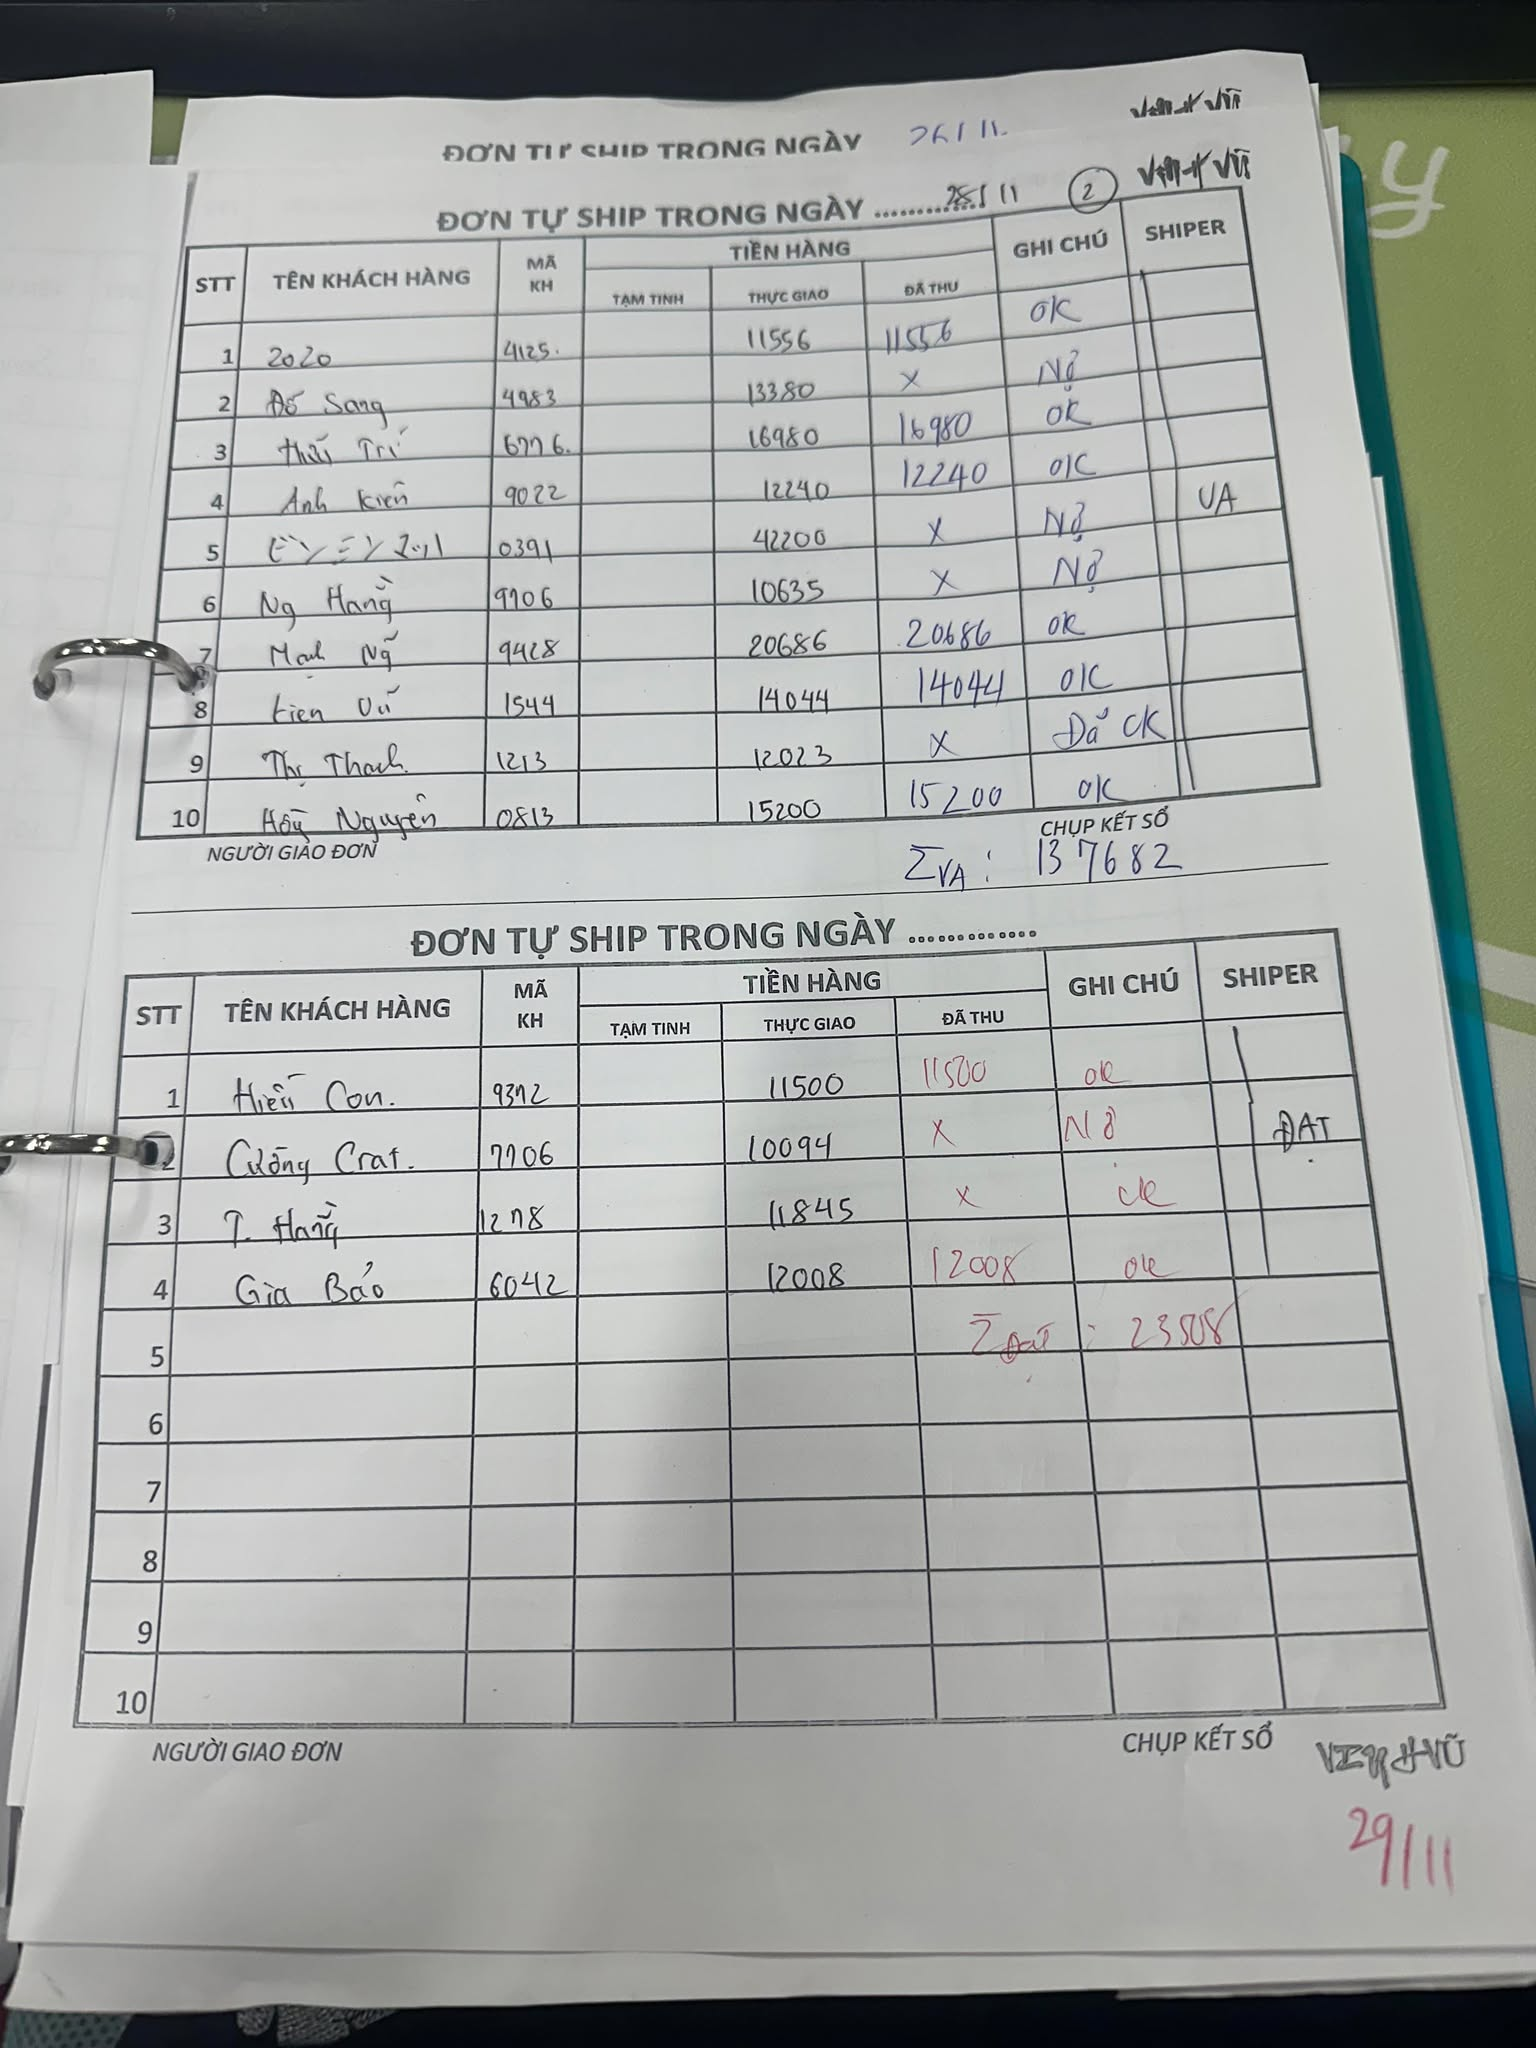 ĐƠN TỰ SHIP TRONG NGÀY 26/11.
ĐƠN TỰ SHIP TRONG NGÀY ............. 28/11 2
STT TÊN KHÁCH HÀNG MÃ KH TIỀN HÀNG GHI CHÚ SHIPER
TẠM TINH THỰC GIAO ĐÃ THU
1 2020 4125. 11556 11556 OK
2 Đỗ Sang 4983 13380 X Nợ
3 Hữu Trí 6776. 16980 16980 OK
4 Anh Kiên 9022 12240 12240 OK VA
5 0391 42200 X Nợ
6 Ng Hằng 9706 10635 X Nợ
7 Mạnh 9428 20686 20686 OK
8 1544 14044 14044 OK
9 Thị Thanh 1213 12023 X Đã CK
10 Nguyễn 0813 15200 15200 OK
NGƯỜI GIAO ĐƠN CHỤP KẾT SỔ
Σ VA : 137682
ĐƠN TỰ SHIP TRONG NGÀY .............
STT TÊN KHÁCH HÀNG MÃ KH TIỀN HÀNG GHI CHÚ SHIPER
TẠM TINH THỰC GIAO ĐÃ THU
1 Hiếu Con. 9372 11500 11500 OK
2 Cường Crat. 7706 10094 X Nợ ĐẠT
3 T. Hằng 1278 11845 X CK
4 Gia Bảo 6042 12008 12008 OK
5 Σ Đạt : 23508
6
7
8
9
10
NGƯỜI GIAO ĐƠN CHỤP KẾT SỔ
29/11